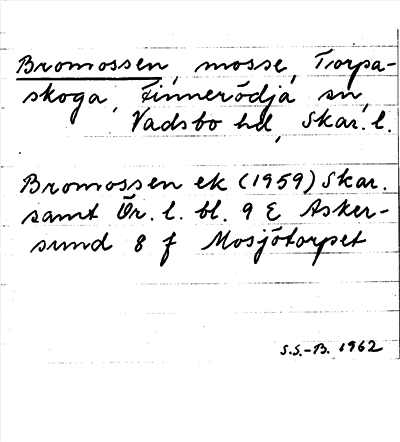 Bromossen, mosse, Torpa-
skoga, Finnerödja sn,
Vadsbo hd, Skar. l.
Bromossen ek (1959) Skar.
samt Ör. l. bl. 9 E Asker-
sund 8 f Mosjötorpet
S.S.-B. 1962